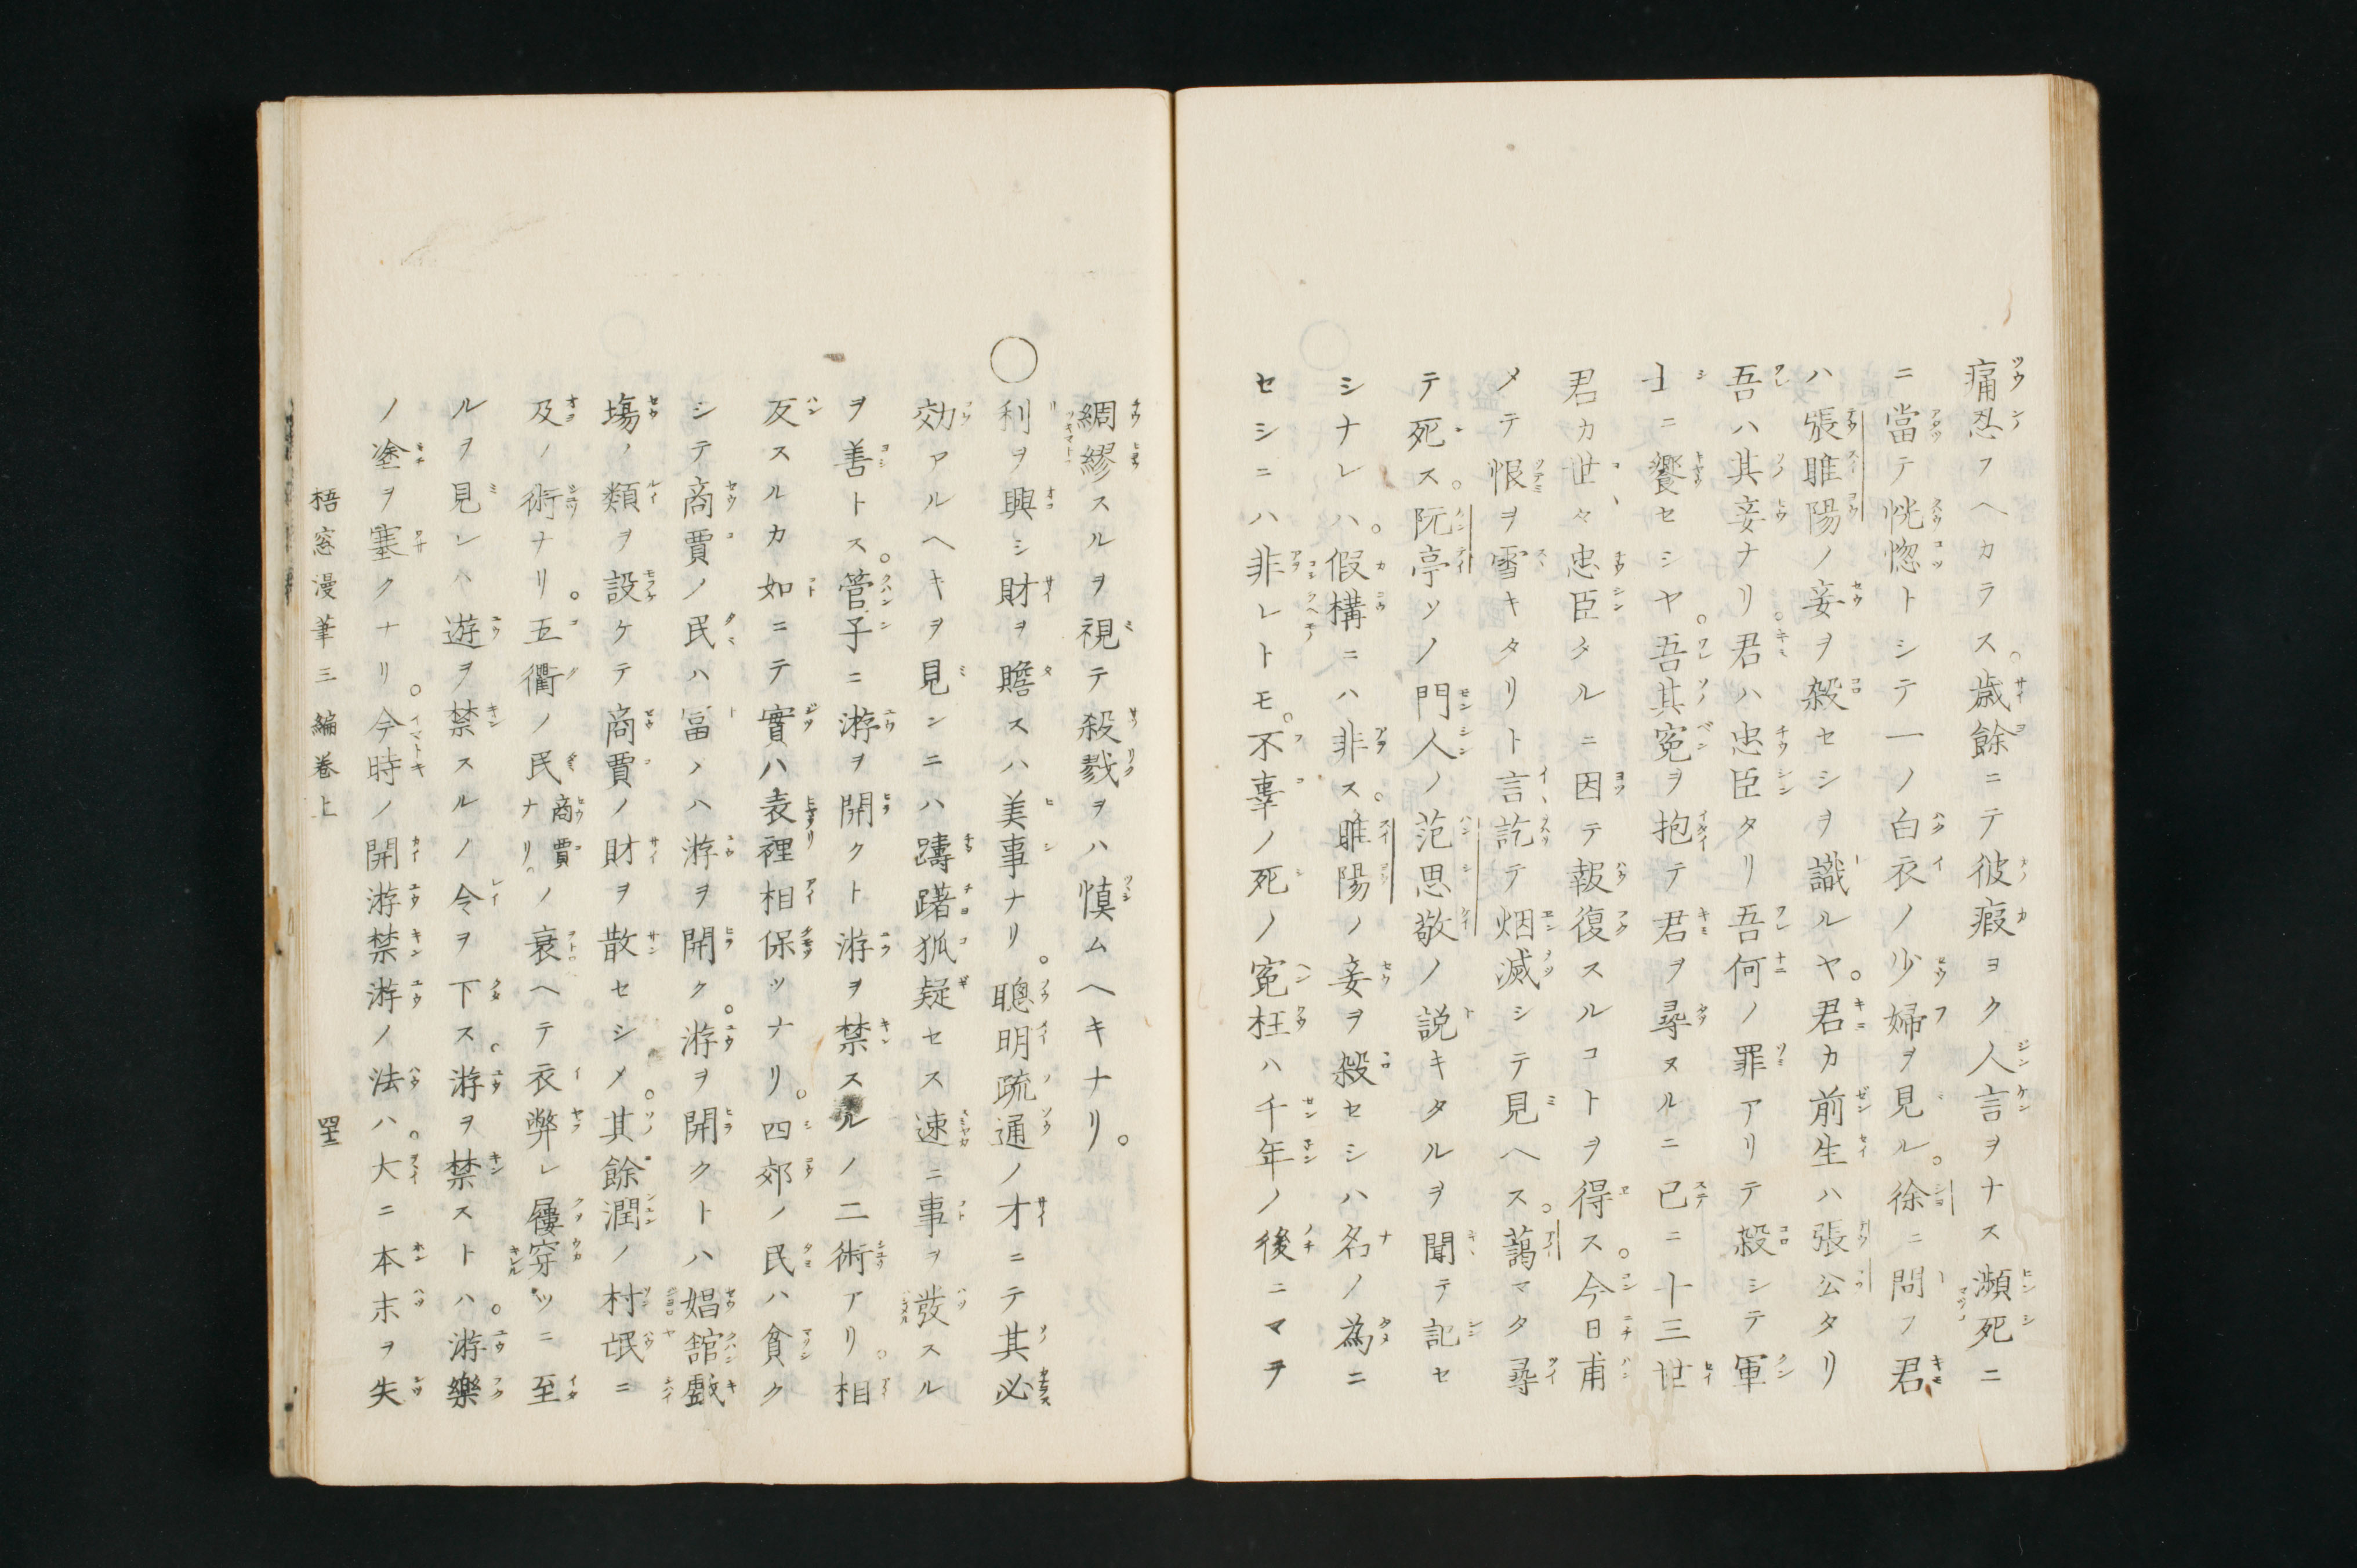 痛忍フヘカラス。歳餘ニテ彼瘕ヨク人言ヲナス瀕死ニ
ニ當テ恍惚トシテ一ノ白衣ノ少婦ヲ見ル。徐ニ問フ君
ハ張睢陽ノ妾ヲ殺セシヲ識ルヤ。君カ前生ハ張公タリ
吾ハ其妾ナリ。君ハ忠臣タリ吾何ノ罪アリテ殺シテ軍
士ニ饗セシヤ。吾其寃ヲ抱テ君ヲ尋ヌルニ已ニ十三世
君カ世々忠臣タルニ因テ報復スルコトヲ得ス。今日甫
メテ恨ヲ雪キタリト言訖テ烟滅シテ見ヘス。藹マタ尋
テ死ス。阮亭ソノ門人ノ范思敬ノ説キタルヲ聞テ記セ
シナレハ。假構ニハ非ス。睢陽ノ妾ヲ殺セシハ名ノ為ニ
セシニハ非レトモ。不辜ノ死ノ寃枉ハ千年ノ後ニマテ
綢繆スルヲ視テ殺戮ヲハ慎ムヘキナリ。
○利ヲ興シ財ヲ贍スハ美事ナリ。聰明疏通ノ才ニテ其必
効アルヘキヲ見ンニハ躊躇狐疑セス速ニ事ヲ發スル
ヲ善トス。管子ニ游ヲ開クト游ヲ禁スルノ二術アリ。相
反スルカ如ニテ實ハ表裡相保ツナリ。四郊ノ民ハ貧ク
シテ商賈ノ民ハ富ノハ游ヲ開ク。游ヲ開クトハ娼舘戯
塲ノ類ヲ設ケテ商賈ノ財ヲ散セシメ。其餘潤ノ村氓ニ
及ノ術ナリ。五衢ノ民ナリ。商賈ノ衰ヘテ衣弊レ屨穿ツニ至
ルヲ見レハ遊ヲ禁スルノ令ヲ下ス。游ヲ禁ストハ。游樂
ノ塗ヲ塞クナリ。今時ノ開游禁游ノ法ハ。大ニ本末ヲ失
梧窓漫筆三編巻上